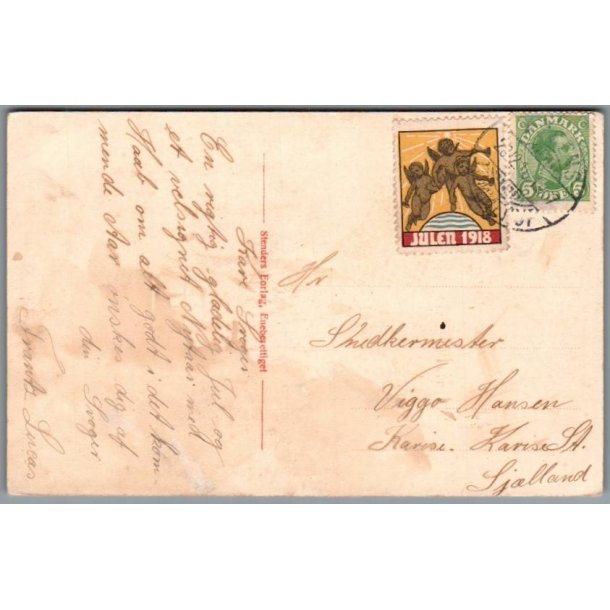 Kære Svoger
En rigtig glædelig Jul og
et velsignet Nytaar med
Haab om alt godt i det kom
mende Aar ønskes dig af
din Svoger
Frantz Lucas
Stenders Forlag, Eneberettiget
JULEN 1918
DANMARK
5 ØRE 5
Hr
Snedkermester
Viggo Hansen
Karise. Karise St.
Sjælland